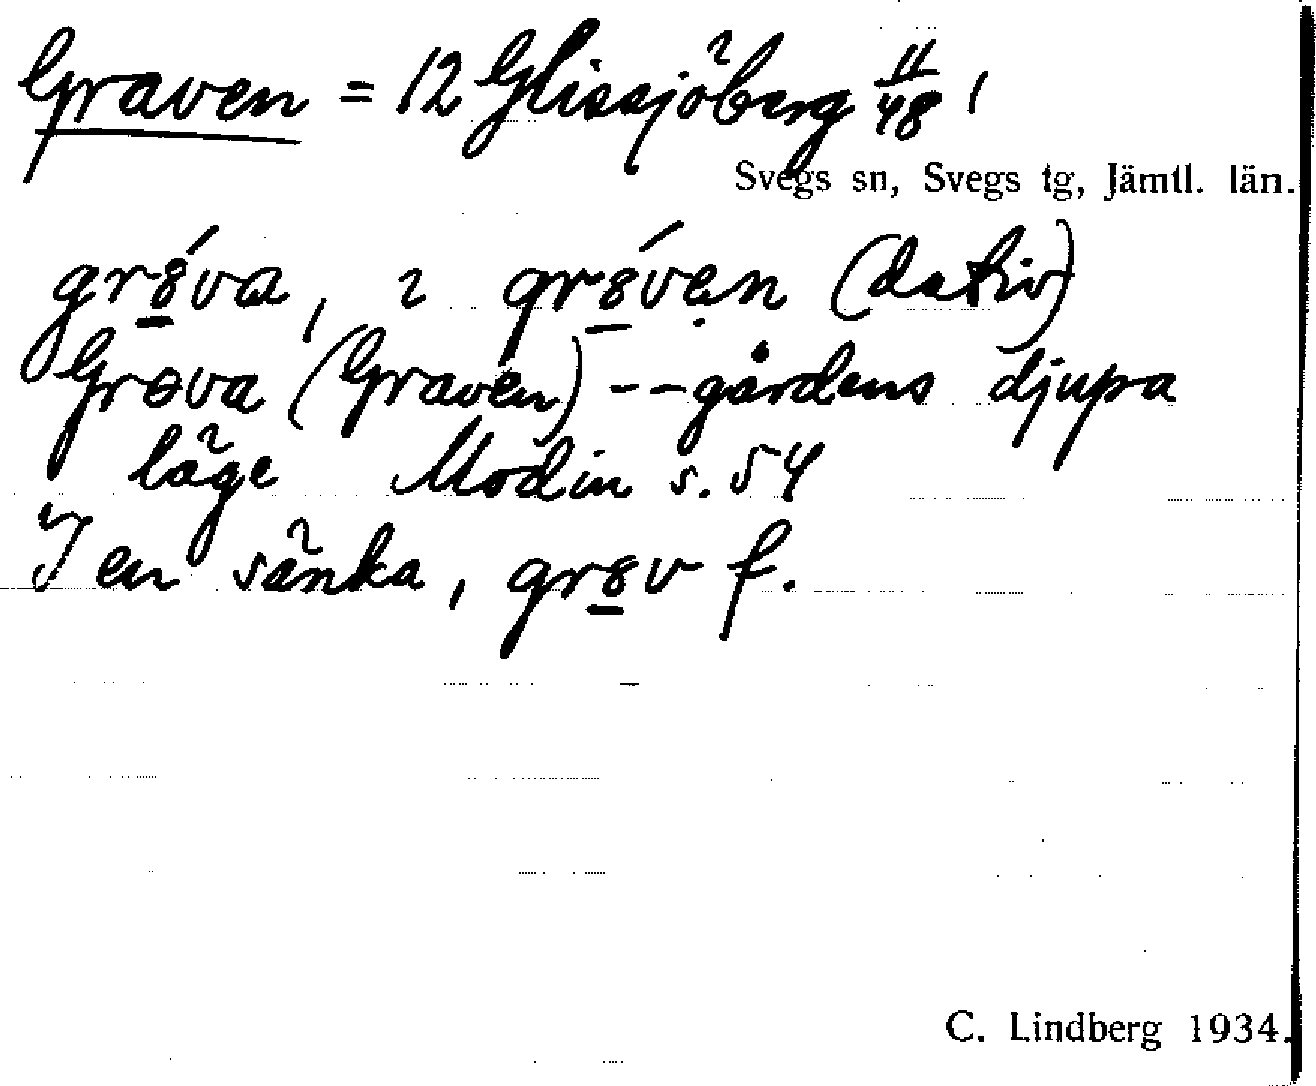 Graven = 12 Glissjöberg 11/48 1
Svegs sn, Svegs tg, Jämtl. län.
gr8́va, ı gr8́vạn (dativ)
Grova (Graven) -- gårdens djupa
läge Modin s. 54
I en sänka, gr8v f.
C. Lindberg 1934.